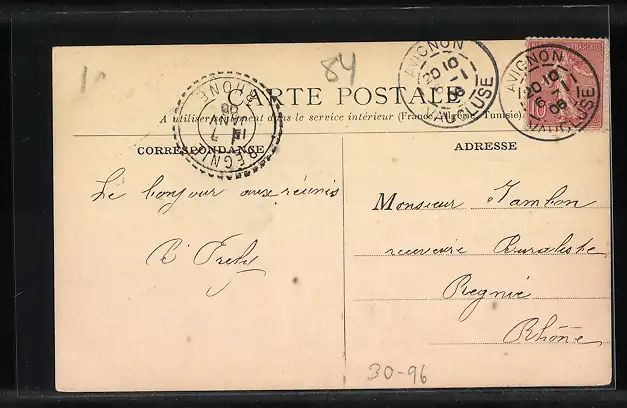 84
CARTE POSTALE
A utiliser seulement dans le service intérieur (France, Algérie, Tunisie).
CORRESPONDANCE
ADRESSE
AVIGNON
20 10
6 -1
06
VAUCLUSE
AVIGNON
20 10
6 -1
06
VAUCLUSE
10
REGNIÉ
7
JANV
06
RHONE
Le bonjour aux réunis
Monsieur Jambon
receveur Buraliste
Regnié
Rhône
30-96